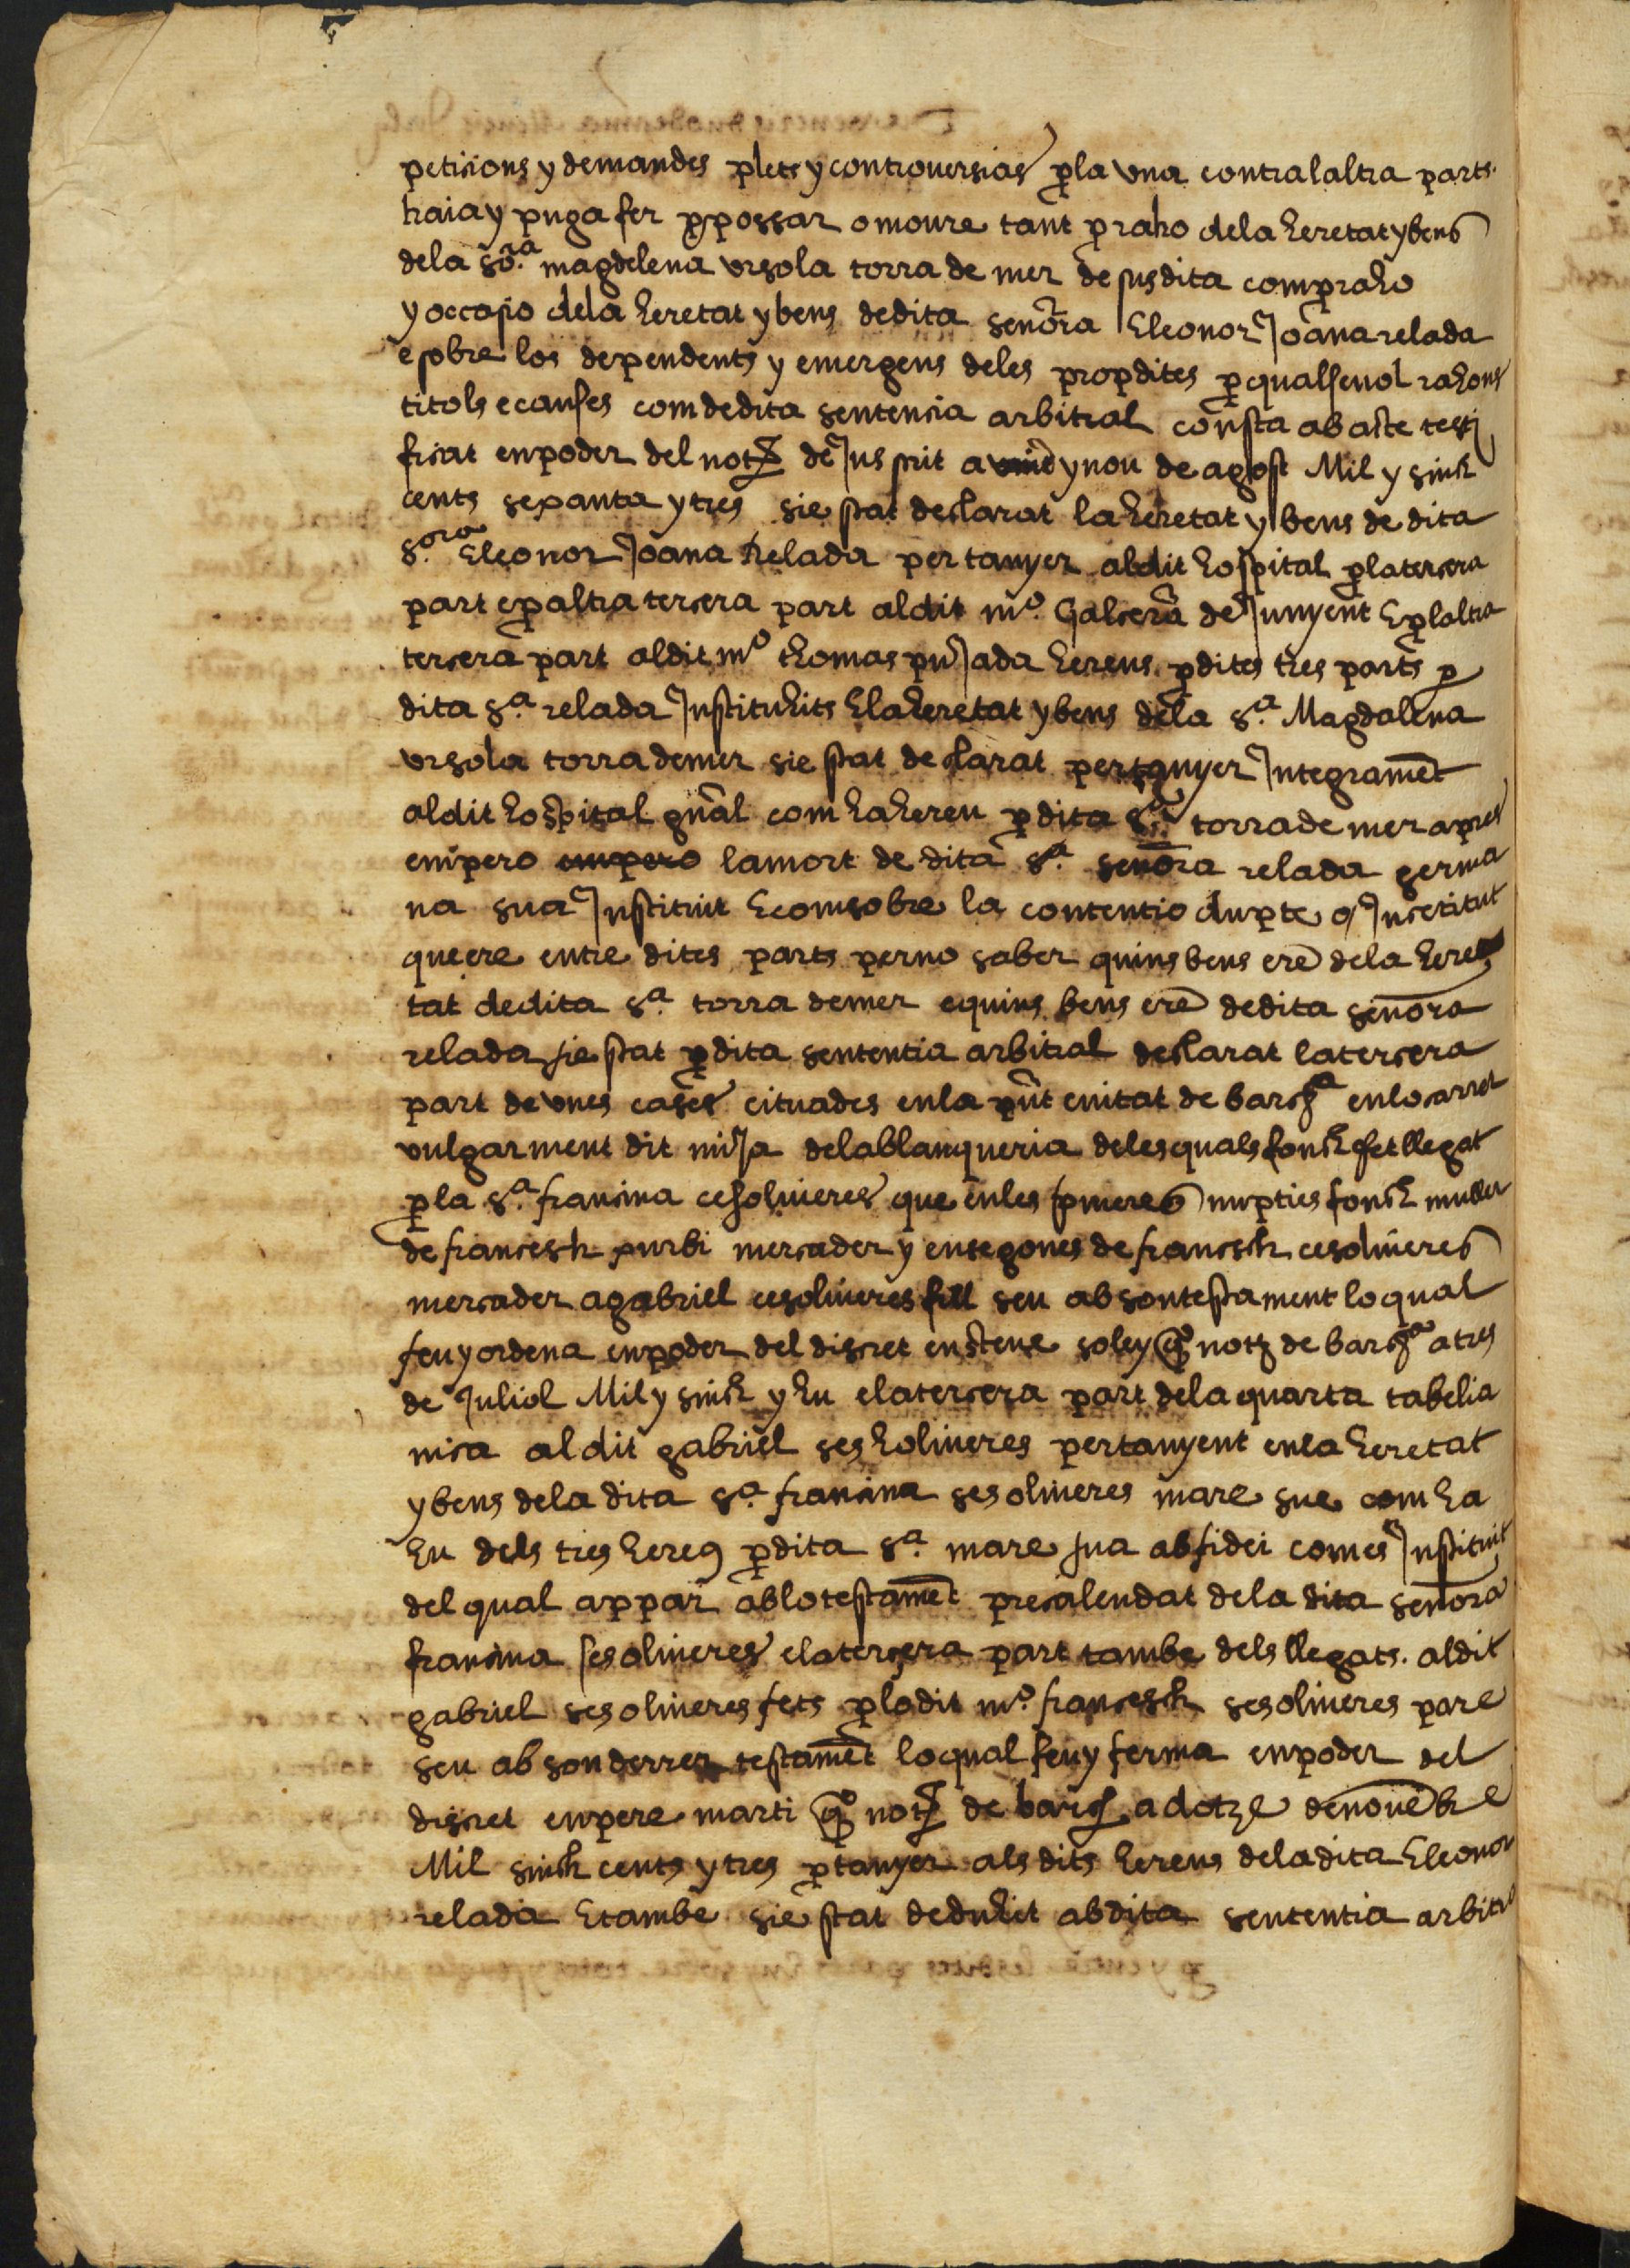 peticions y demandes plets y controversias p̱ la una contra l altra parts.
haia y puga fer p̱possar o moure tant p̱ raho de la heretat y bens
de la so.ra magdelena ursola torra de mer desusdita com p̱ raho
y occasio de la heretat y bens de dita senõra Eleonor Joana relada
e sobre los dependents y emergens de les propdites p̱ qualsevol rahons
titols e causes com de dita sentencia arbitral consta ab acte testi
ficat en poder del not de Jus scrit a y nou de agost Mil y sinch
cents sexanta y tres sie stat declarat la heretat y bens de dita
S.ora Eleonor Joana Relada pertanyer al dit hospital p̱ la tercera
part e p̱ altra tercera part al dit mo. Galcerã de Junyent E p̱ l altra
tercera part al dit mo thomas pujada hereus p̱ dites tres parts p̱
dita s.a relada Instituhits E la heretat y bens de la s.a Magdalena
ursola torra de mer sie stat declarat pertanyer Integramẽt
al dit hospital gñal com ha hereu p̱ dita s.a torra de mer apres
empero empero la mort de dita s.a senõra relada germa
na sua Instituit E com sobre la contentio dupte o Incetitut
que ere entre dites parts per no saber quins bens erẽ de la here
tat de dita s.a torra de mer e quins bens erẽ de dita senõra
relada sie stat p̱ dita sententia arbitral declarat la tercera
part de unes cases cituades en la pñt ciutat de barca en lo carrer
vulgarment dit mija de la blanqueria de les quals fonch fet llegat
p̱ la s.a francina cesoliveres que en les pmeres nupties fonch muller
de francesch purbi mercader y en segones de francesch cesoliveres
mercader a gabriel cesoliveres fill seu ab son testament lo qual
feu y ordena en poder del discret en steve soley qo not de barca a tres
de Juliol Mil y sinch y hu e la tercera part de la quarta tabelia
nica al dit gabriel ses holiveres pertanyent en la heretat
y bens de la dita s.a francina sesoliveres mare sue com ha
hu dels tres hereus p̱ dita s.a mare sua ab fidei comes Instituit
del qual appar ab lo testamẽt precalendat de la dita senõra
francina sesoliveres e la tercera part tambe dels llegats. al dit
gabriel sesoliveres fets p̱ lo dit mo. francesch sesoliveres pare
seu ab son derrer testamẽt lo qual feu y ferma en poder del
discret en pere marti qo not de barc a dotze de novẽbre
Mil sinch cents y tres p̱tanyer als dits hereus de la dita Eleonor
relada E tambe sie stat deduhit ab dita sententia arbitra